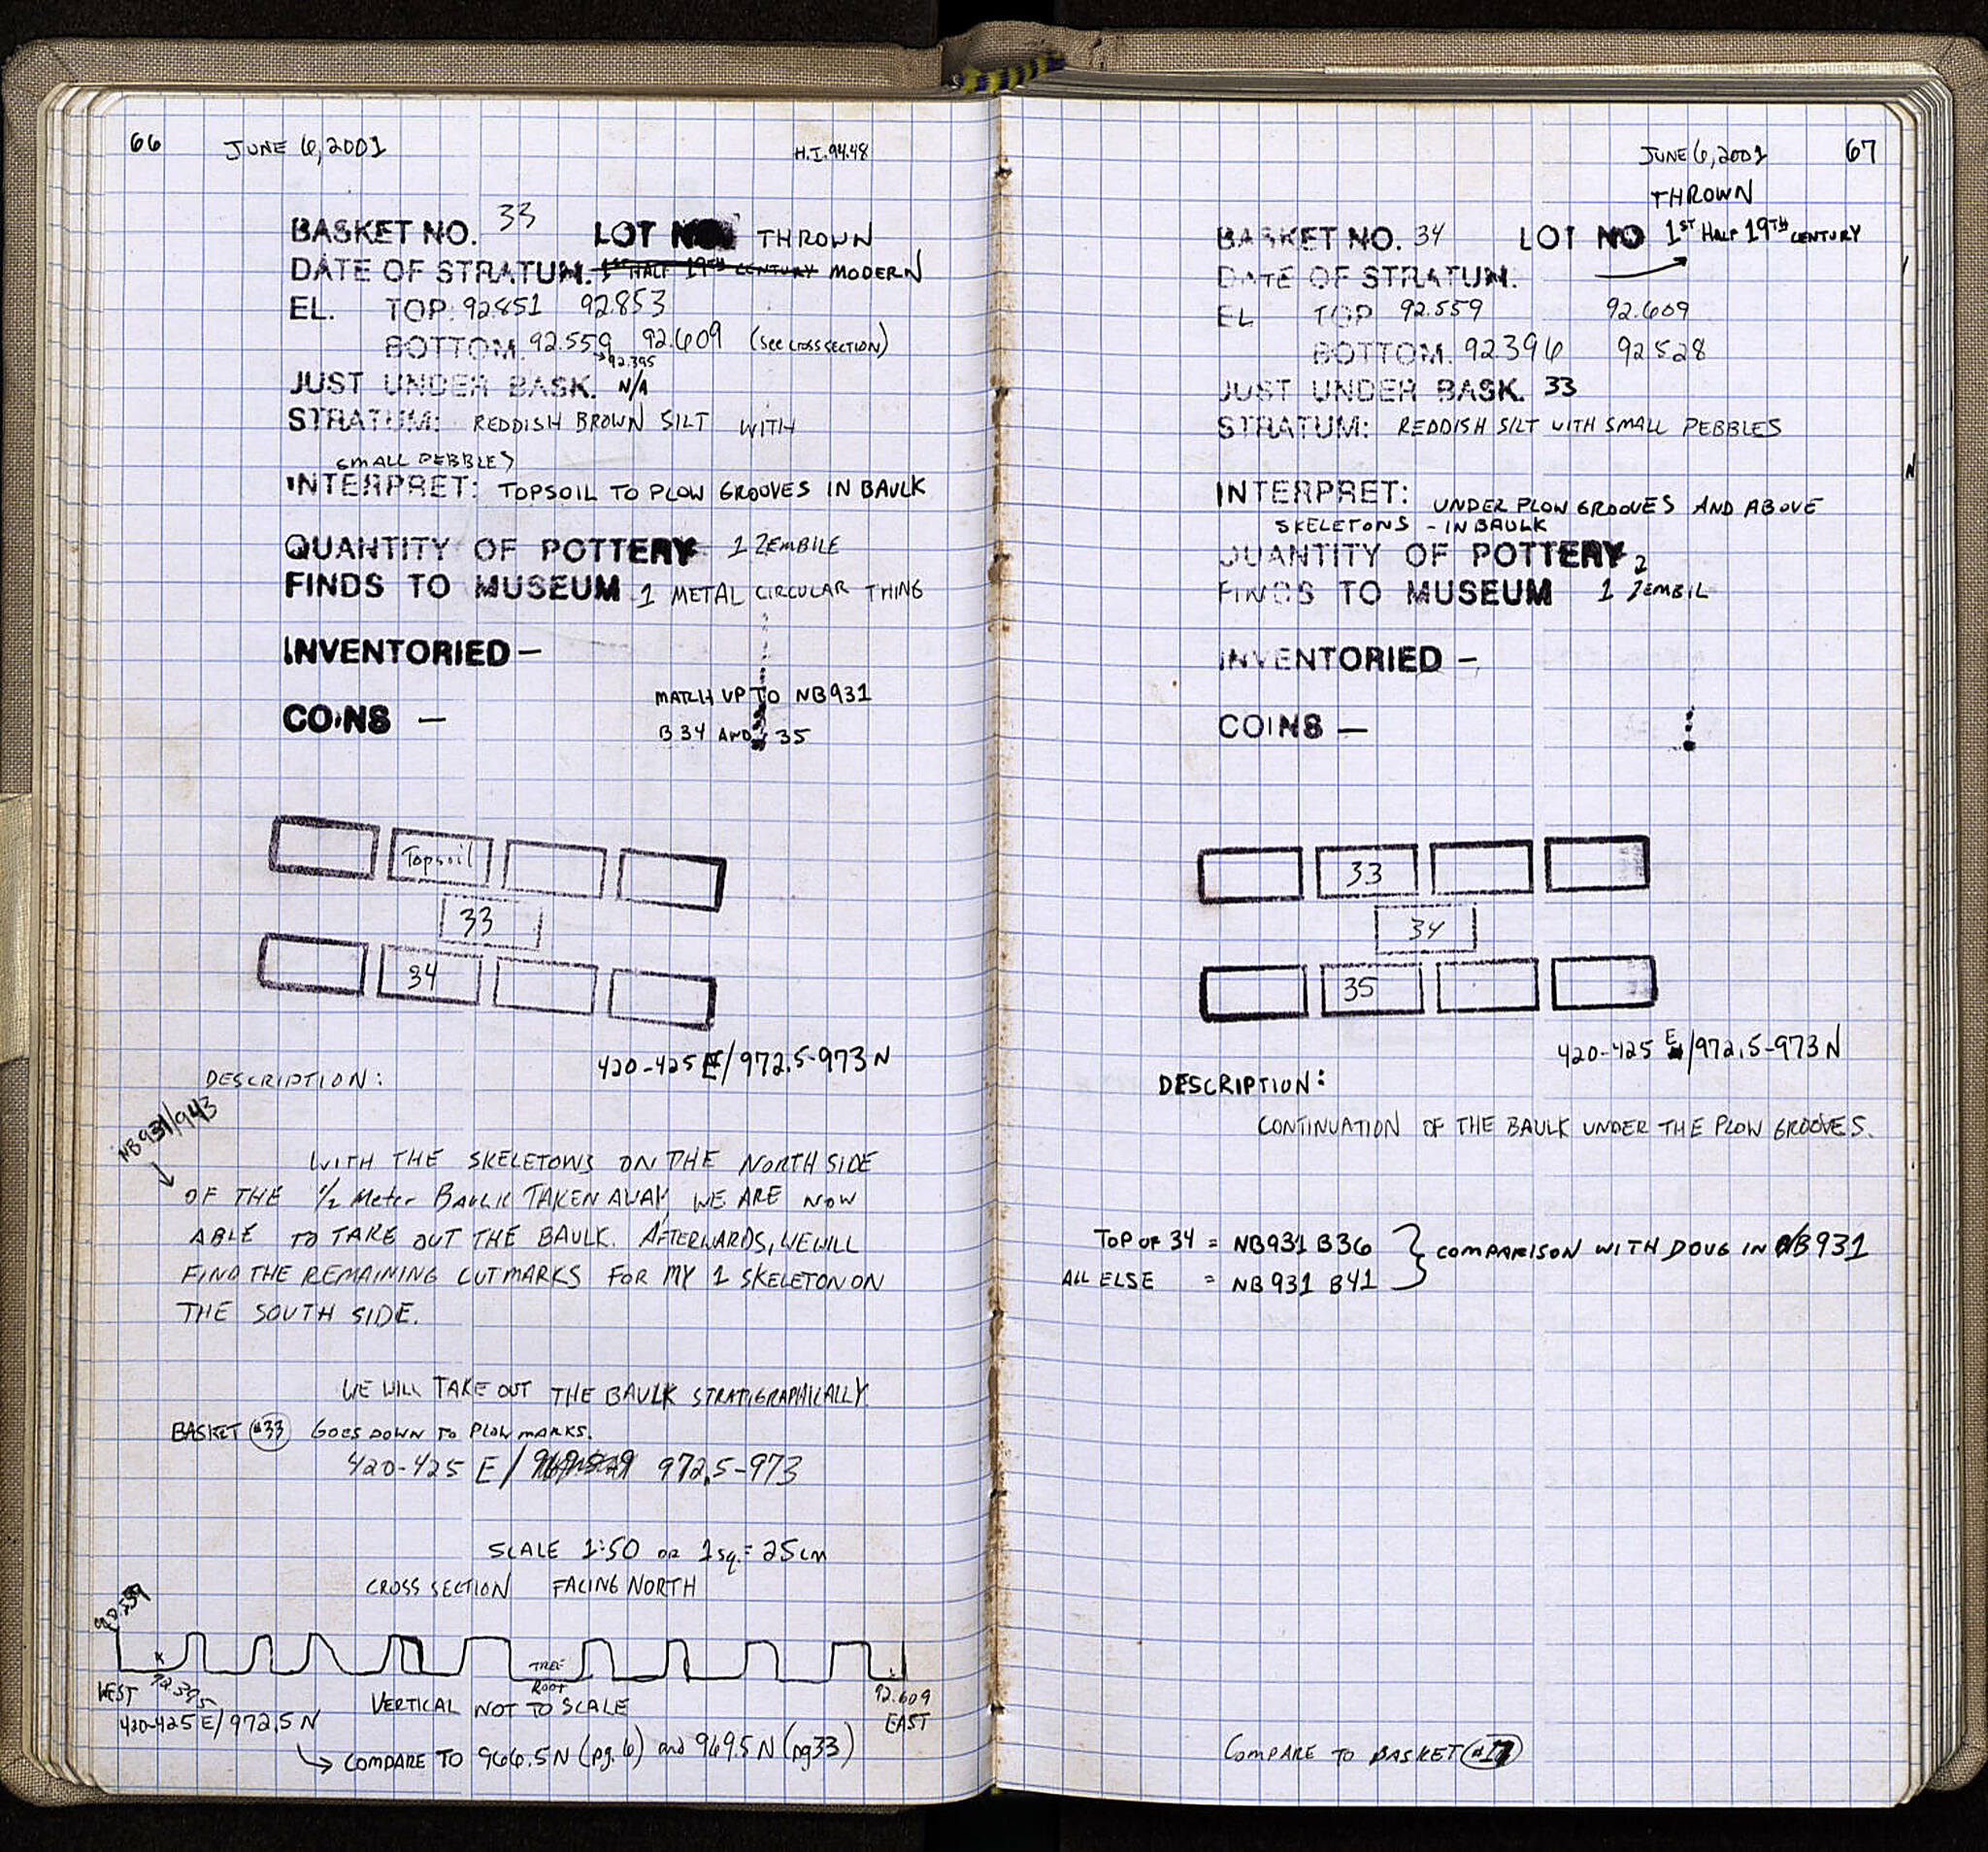 66 JUNE 6, 2001 H.I. 94.48
BASKET NO. 33 LOT NO THROWN
DATE OF STRATUM. 1ST HALF 19TH CENTURY MODERN
EL. TOP: 92.851 92.853
BOTTOM. 92.559 92.609 (SEE CROSS SECTION)
→92.395
JUST UNDER BASK. N/A
STRATUM: REDDISH BROWN SILT WITH
SMALL PEBBLES
INTERPRET: TOPSOIL TO PLOW GROOVES IN BAULK
QUANTITY OF POTTERY 1 ZEMBILE
FINDS TO MUSEUM 1 METAL CIRCULAR THING
INVENTORIED –
MATCH UP TO NB931
COINS –
B 34 AND 35
Topsoil
33
34
420-425 E/972.5-973 N
DESCRIPTION:
NB931/943
WITH THE SKELETONS ON THE NORTH SIDE
OF THE 1/2 Meter BAULK TAKEN AWAY, WE ARE NOW
ABLE TO TAKE OUT THE BAULK. AFTERWARDS, WE WILL
FIND THE REMAINING CUTMARKS FOR MY 1 SKELETON ON
THE SOUTH SIDE.
WE WILL TAKE OUT THE BAULK STRATIGRAPHICALLY.
BASKET #33 GOES DOWN TO PLOW MARKS.
420-425 E/ 972.5-973
SCALE 1:50 OR 1 sq. = 25cm
CROSS SECTION FACING NORTH
92.559
TREE
ROOT
WEST 92.395 VERTICAL NOT TO SCALE 92.609
EAST
420-425 E/972.5 N
→ COMPARE TO 966.5 N (pg. 6) and 969.5 N (pg 33)
JUNE 6, 2001 67
THROWN
BASKET NO. 34 LOT NO 1ST HALF 19TH CENTURY
DATE OF STRATUM.
EL TOP 92.559 92.609
BOTTOM. 92.396 92.528
JUST UNDER BASK. 33
STRATUM: REDDISH SILT WITH SMALL PEBBLES
INTERPRET: UNDER PLOW GROOVES AND ABOVE
SKELETONS - IN BAULK
QUANTITY OF POTTERY 2
FINDS TO MUSEUM 1 ZEMBIL
INVENTORIED –
COINS –
33
34
35
420-425 E/972.5-973 N
DESCRIPTION:
CONTINUATION OF THE BAULK UNDER THE PLOW GROOVES.
TOP OF 34 = NB931 B36 } COMPARISON WITH DOUG IN NB931
ALL ELSE = NB931 B41
COMPARE TO BASKET #17